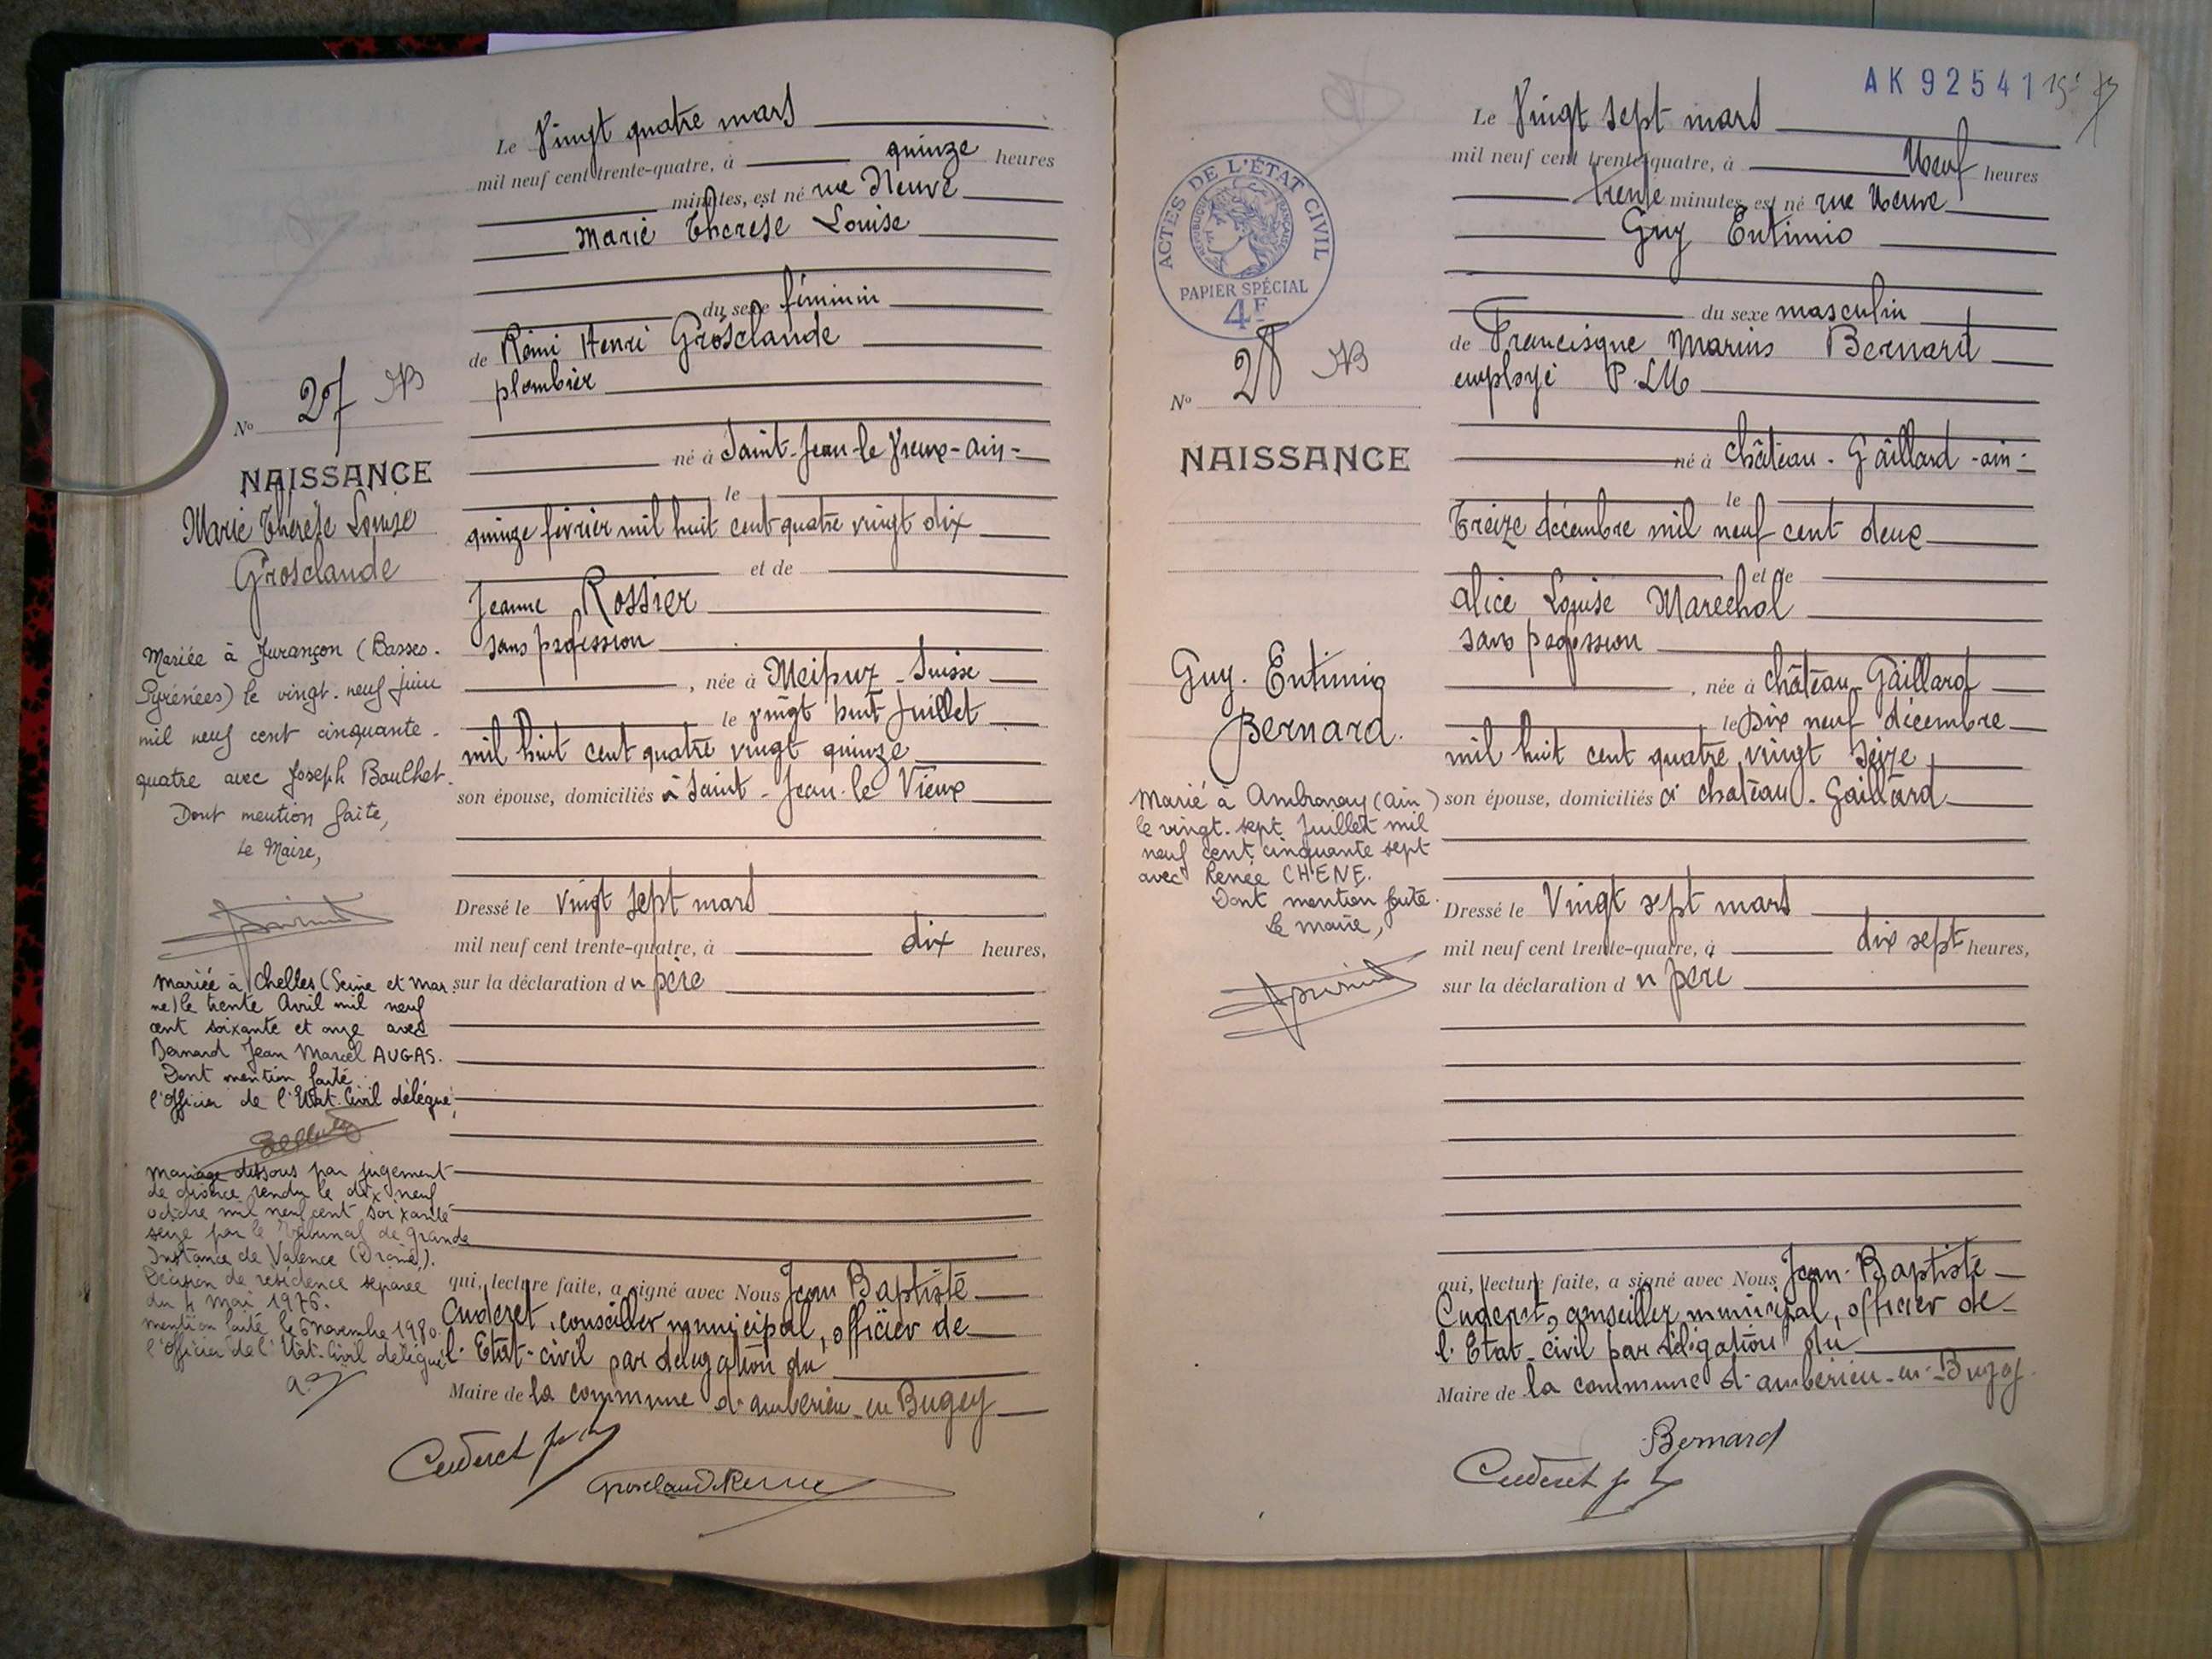 Le Vingt quatre mars
mil neuf cent trente-quatre, à quinze heures
minutes, est né rue Neuve
Marie Thérèse Louise
du sexe féminin
de Rémi Henri Grosclaude
plombier
né à Saint-Jean-le Vieux-ain-
le
quinze février mil huit cent quatre vingt dix
et de
Jeanne Rossier
sans profession
, née à Suisse
le vingt huit Juillet
mil huit cent quatre vingt quinze
son épouse, domiciliés à Saint-Jean-le Vieux
Dressé le vingt sept mars
mil neuf cent trente-quatre, à dix heures,
sur la déclaration du père
qui, lecture faite, a signé avec Nous Jean Baptiste
Cuderet, conseiller municipal, officier de
l'Etat-civil par délégation du
Maire de la commune d'ambérieu-en Bugey
Cuderet
N° 27
NAISSANCE
Marie Thérèse Louise
Grosclaude
Mariée à Jurançon (Basses-
Pyrénées) le vingt-neuf juin
mil neuf cent cinquante-
quatre avec Joseph Boulhet.
Dont mention faite,
Le Maire,
Mariée à Chelles (Seine et Mar
ne) le trente Avril mil neuf
cent soixante et onze avec
Bernard Jean Marcel AUGAS.
Dont mention faite
l'Officier de l'Etat-Civil délégué,
Mariage dissous par jugement
de divorce rendu le dix neuf
octobre mil neuf cent soixante
seize par le Tribunal de Grande
Instance de Valence (Drôme).
Décision de résidence séparée
du 4 mai 1976.
mention faite le 6 novembre 1980
l'Officier de l'Etat-Civil délégué
AK 92541
ACTES DE L'ÉTAT CIVIL
RÉPUBLIQUE FRANÇAISE
PAPIER SPÉCIAL
4F
Le Vingt sept mars
mil neuf cent trente-quatre, à Neuf heures
trente minutes, est né rue Neuve
Guy Entimio
du sexe masculin
de Francisque Marius Bernard
employé P.L.M
né à château-Gaillard-ain-
le
Treize décembre mil neuf cent deux
et de
Alice Louise Marechal
sans profession
, née à château-Gaillard
le Dix neuf décembre
mil huit cent quatre vingt seize
son épouse, domiciliés à château-Gaillard
Dressé le Vingt sept mars
mil neuf cent trente-quatre, à dix sept heures,
sur la déclaration du père
qui, lecture faite, a signé avec Nous Jean-Baptiste
Cuderet, conseiller municipal, officier de
l'Etat-civil par délégation du
Maire de la commune d'ambérieu-en-Bugey
Bernard
Cuderet
N° 28
NAISSANCE
Guy. Entimio
Bernard.
Marié à Ambronay (ain)
le vingt-sept Juillet mil
neuf cent cinquante sept
avec Renée CHENE.
Dont mention faite.
Le maire,